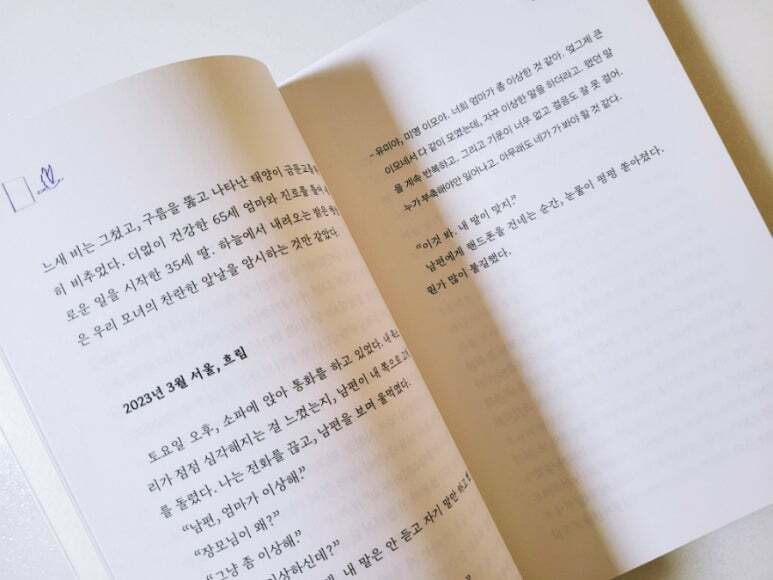 느새 비는 그쳤고, 구름을 뚫고 나타난 태양이
히 비추었다. 더없이 건강한 65세 엄마와 진로를
로운 일을 시작한 35세 딸. 하늘에서 내려오는 밝은
은 우리 모녀의 찬란한 앞날을 암시하는 것만 같았다.
2023년 3월 서울, 흐림
토요일 오후, 소파에 앉아 통화를 하고 있었다. 내
리가 점점 심각해지는 걸 느꼈는지, 남편이 내 쪽으로
를 돌렸다. 나는 전화를 끊고, 남편을 보며 울먹였다.
“남편, 엄마가 이상해.”
“장모님이 왜?”
“그냥 좀 이상해.”
이상하신데?”
내 말은 안 듣고 자기 말만 하고
- 유미야, 미명 이모야. 너희 엄마가 좀 이상한 것 같아. 엊그제 큰
이모네서 다 같이 모였는데, 자꾸 이상한 말을 하더라고. 했던 말
을 계속 반복하고. 그리고 기운이 너무 없고 걸음도 잘 못 걸어.
누가 부축해야만 일어나고. 아무래도 네가 가 봐야 할 것 같다.
“이것 봐. 내 말이 맞지.”
남편에게 핸드폰을 건네는 순간, 눈물이 펑펑 쏟아졌다.
뭔가 많이 불길했다.